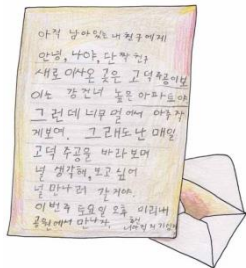 아직 남아있는 내 친구에게
안녕, 나야, 단짝 친구
새로 이사온 곳은 고덕주공이보
이는 강 건너 높은 아파트야
그런데 너무 멀어서 아주 작
게보여, 그래도 난 매일
고덕주공을 바라보며
널 생각해, 보고 싶어
널 만나러 갈 거야
이번주 토요일 오후 미리내
공원에서 만나자.